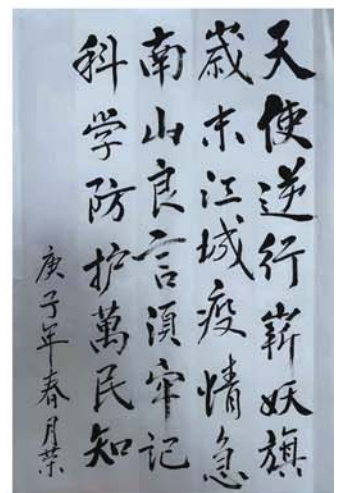 天使逆行嶄妖旗
歲末江城疫情急
南山良言須牢記
科学防护萬民知
庚子年春月荣